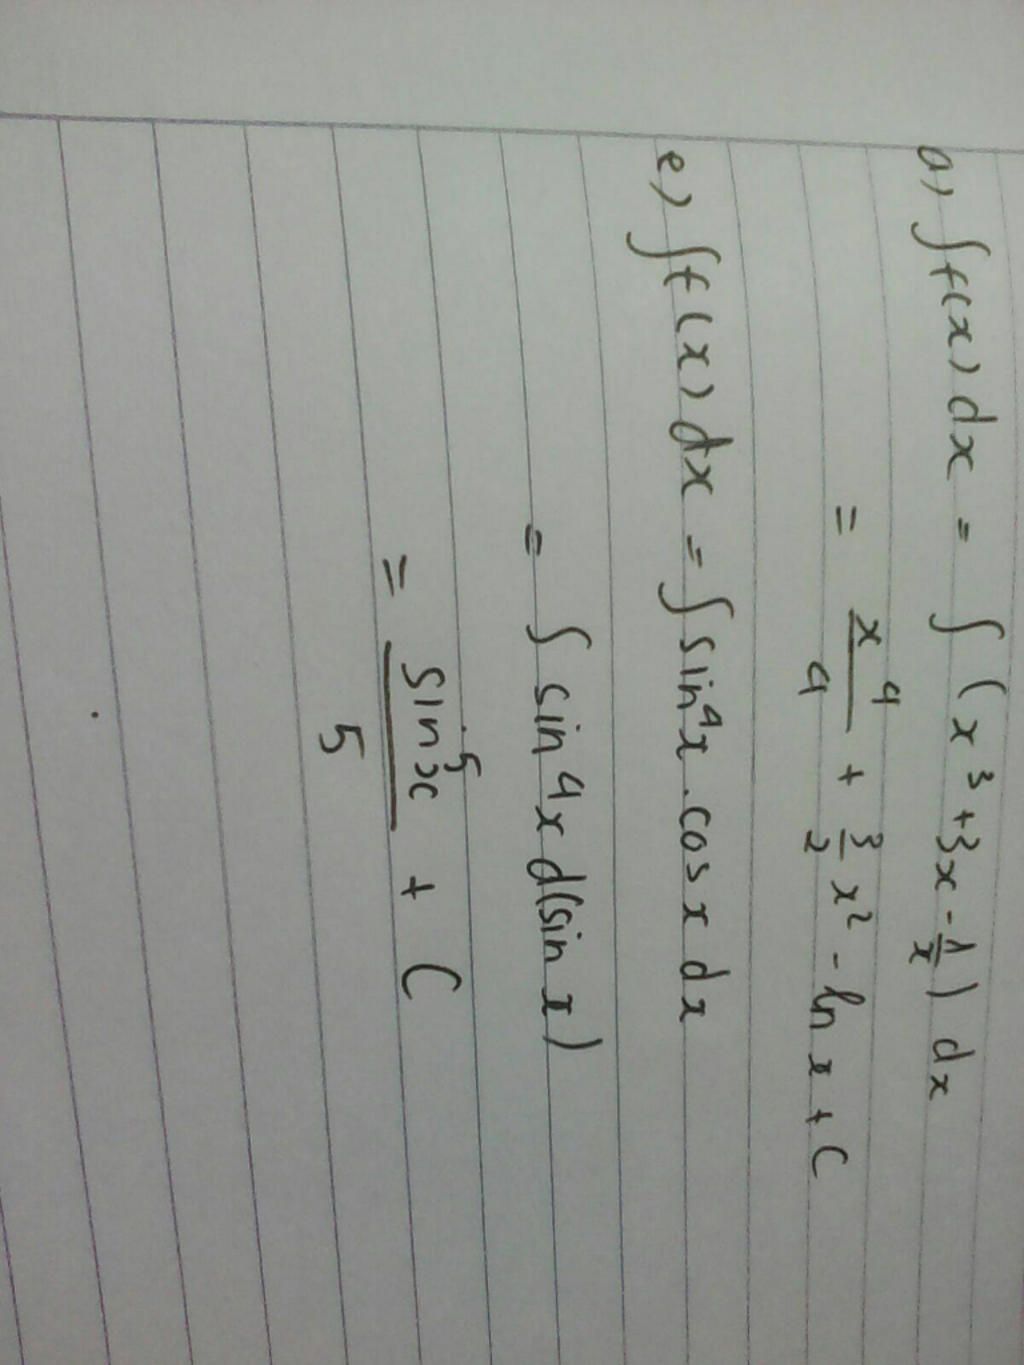 a) ∫f(x)dx = ∫(x³+3x-1/x)dx
= x⁴/4 + 3/2 x² - ln x + C
e) ∫f(x)dx = ∫sin⁴x.cos x dx
= ∫ sin⁴x d(sin x)
= sin⁵x/5 + C